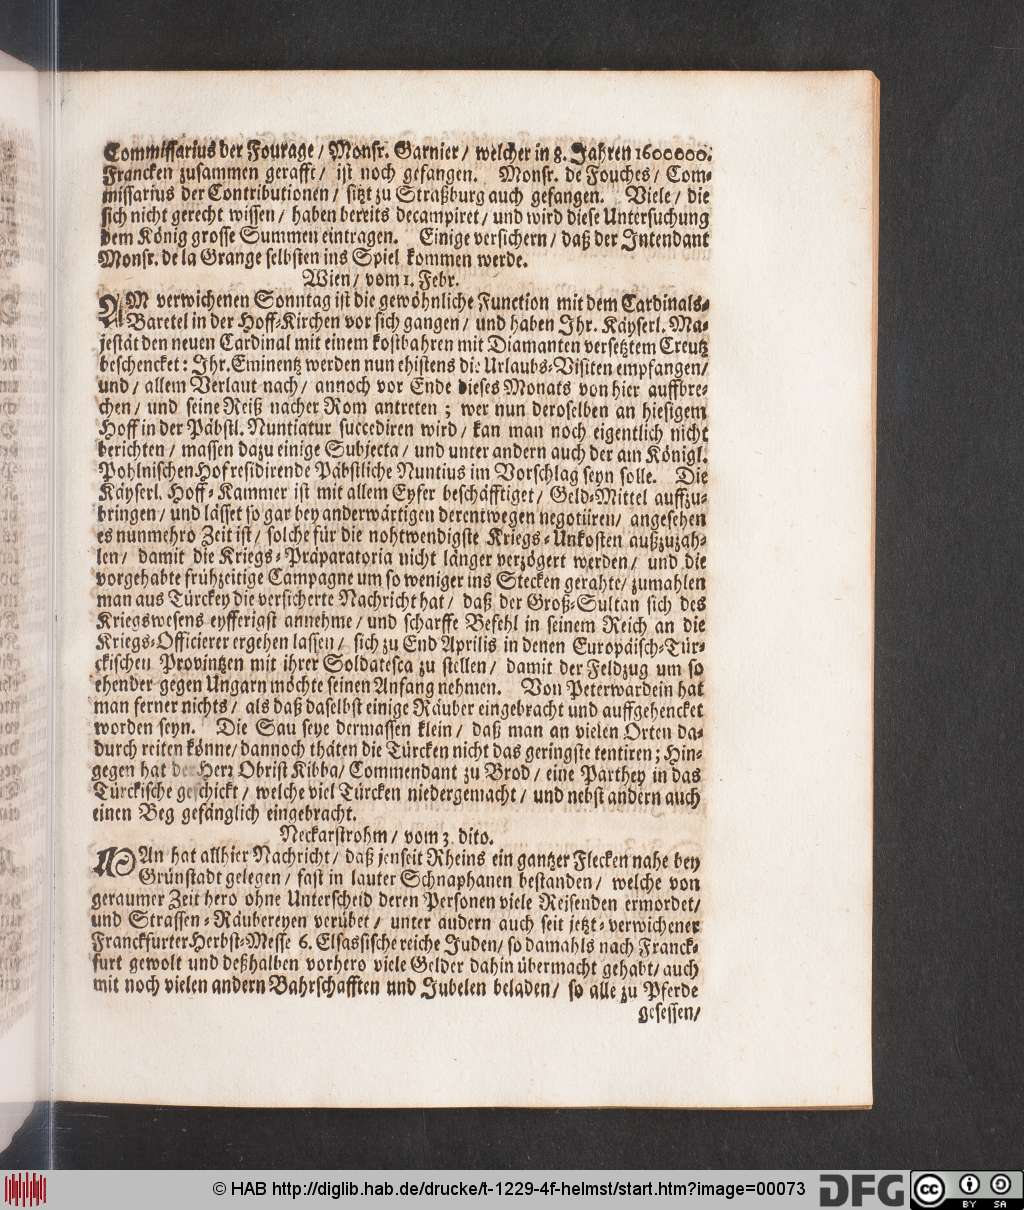 Commissarius der Fourage / Monsr. Garnier / welcher in 8. Jahren 1600000.
Francken zusammen gerafft / ist noch gefangen. Monsr. de Fouches / Com-
missarius der Contributionen / sitzt zu Straßburg auch gefangen. Viele / die
sich nicht gerecht wissen / haben bereits decampiret / und wird diese Untersuchung
dem König grosse Summen eintragen. Einige versichern / daß der Intendant
Monsr. de la Grange selbsten ins Spiel kommen werde.
Wien / vom 1. Febr.
AM verwichenen Sonntag ist die gewöhnliche Function mit dem Cardinals-
Baretel in der Hoff-Kirchen vor sich gangen / und haben Ihr. Käyserl. Ma-
jestät den neuen Cardinal mit einem kostbahren mit Diamanten versetztem Creutz
beschencket: Ihr. Eminentz werden nun ehistens die Urlaubs-Visiten empfangen /
und / allem Verlaut nach / annoch vor Ende dieses Monats von hier auffbre-
chen / und seine Reiß nacher Rom antreten ; wer nun deroselben an hiesigem
Hoff in der Päbstl. Nuntiatur succediren wird / kan man noch eigentlich nicht
berichten / massen dazu einige Subjecta / und unter andern auch der am Königl.
Pohlnischen Hof residirende Päbstliche Nuntius im Vorschlag seyn solle. Die
Käyserl. Hoff-Kammer ist mit allem Eyfer beschäfftiget / Geld-Mittel auffzu-
bringen / und lässet so gar bey anderwärtigen derentwegen negotiiren / angesehen
es nunmehro Zeit ist / solche für die nohtwendigste Kriegs-Unkosten außzuzah-
len / damit die Kriegs-Präparatoria nicht länger verzögert werden / und die
vorgehabte frühzeitige Campagne um so weniger ins Stecken gerahte / zumahlen
man aus Türckey die versicherte Nachricht hat / daß der Groß-Sultan sich des
Kriegswesens eyfferigst annehme / und scharffe Befehl in seinem Reich an die
Kriegs-Officierer ergehen lassen / sich zu End Aprilis in denen Europäisch-Tür-
ckischen Provintzen mit ihrer Soldatesca zu stellen / damit der Feldzug um so
ehender gegen Ungarn möchte seinen Anfang nehmen. Von Peterwardein hat
man ferner nichts / als daß daselbst einige Räuber eingebracht und auffgehencket
worden seyn. Die Sau seye dermassen klein / daß man an vielen Orten da-
durch reiten könne / dannoch thäten die Türcken nicht das geringste tentiren ; Hin-
gegen hat der Herr Obrist Kibba / Commendant zu Brod / eine Parthey in das
Türckische geschickt / welche viel Türcken niedergemacht / und nebst andern auch
einen Beg gefänglich eingebracht.
Neckarstrohm / vom 3. dito.
MAn hat allhier Nachricht / daß jenseit Rheins ein gantzer Flecken nahe bey
Grünstadt gelegen / fast in lauter Schnaphanen bestanden / welche von
geraumer Zeit hero ohne Unterscheid deren Personen viele Reisenden ermordet /
und Strassen-Räubereyen verübet / unter andern auch seit jetzt-verwichener
Franckfurter Herbst-Messe 6. Elsassische reiche Juden / so damahls nach Franck-
furt gewolt und deßhalben vorhero viele Gelder dahin übermacht gehabt / auch
mit noch vielen andern Bahrschafften und Jubelen beladen / so alle zu Pferde
gesessen /
© HAB http://diglib.hab.de/drucke/t-1229-4f-helmst/start.htm?image=00073
DFG
cc BY SA